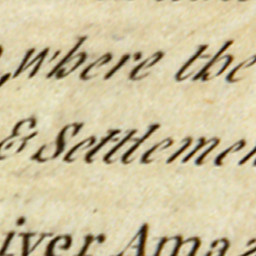 ,where the
& Settlemen
iver Amaz